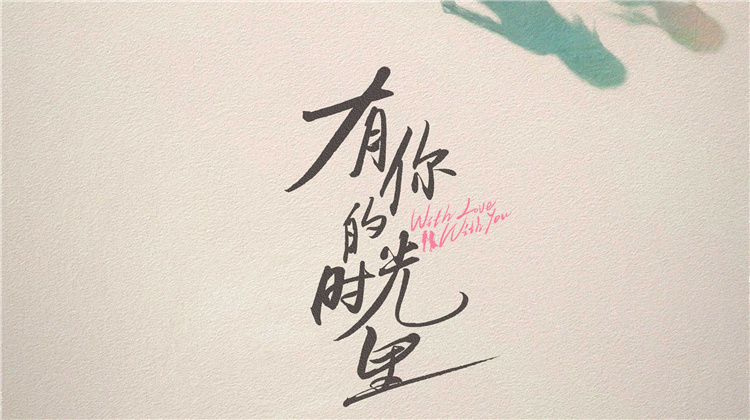 有你
的时光
里
With Love
With You